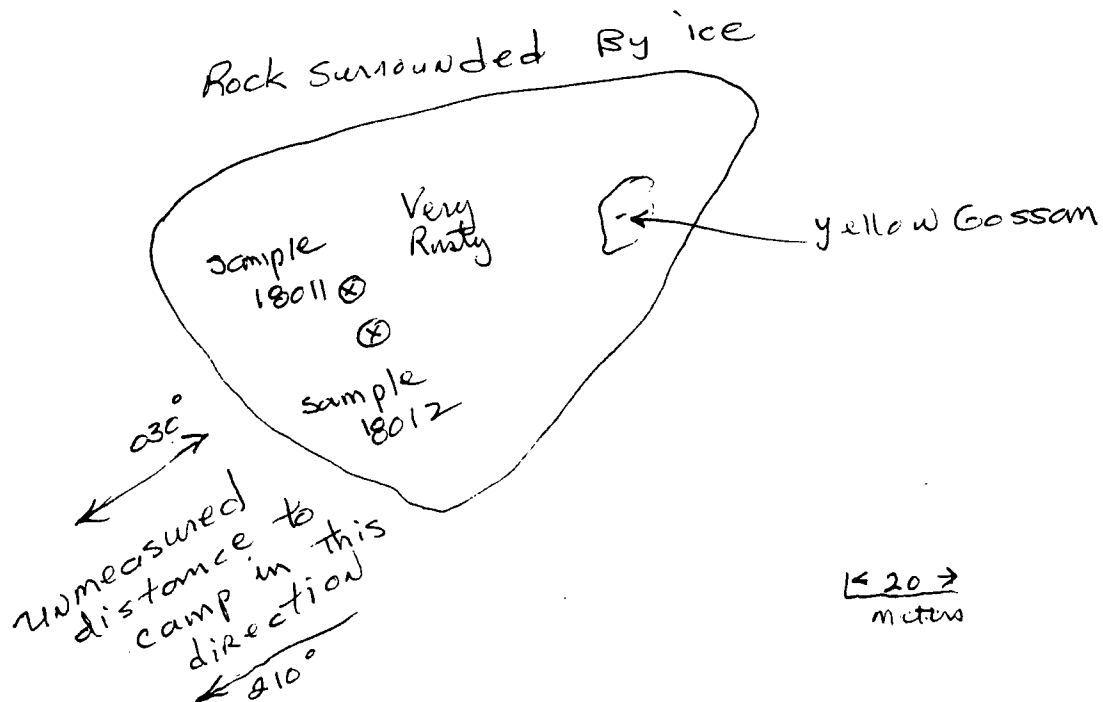 Rock Surrounded By ice
Very
Rusty
sample
18011
yellow Gossan
sample
18012
030°
unmeasured
distance to
camp in this
direction
210°
20
meters